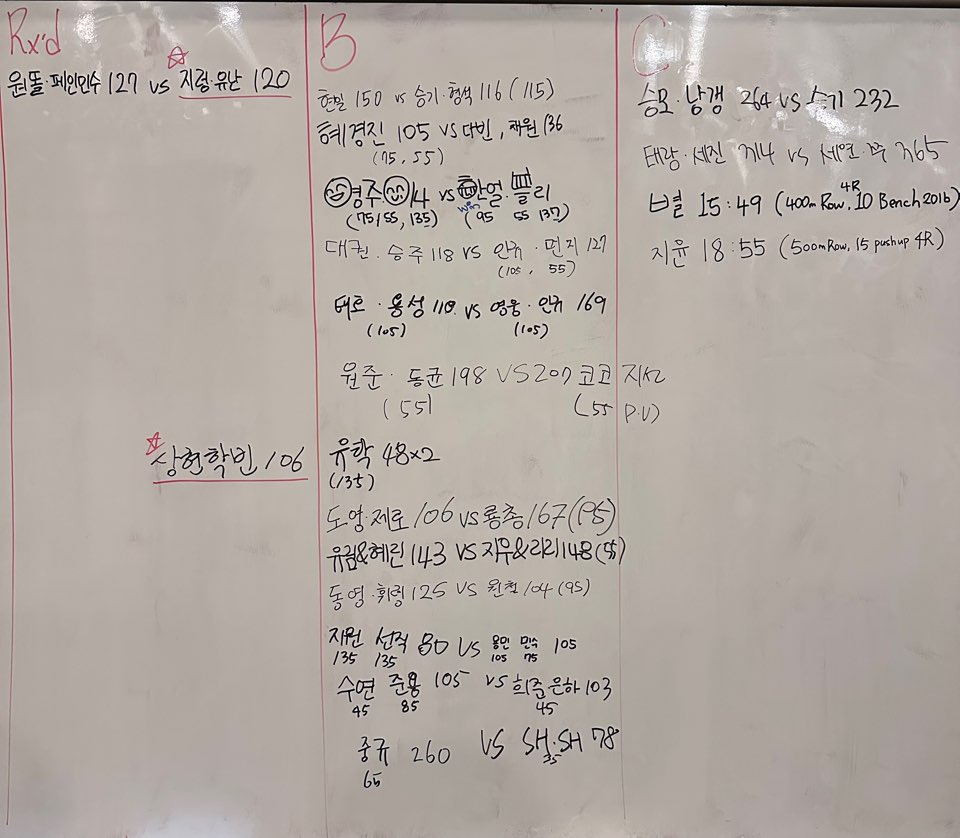 Rx'd
원돌·페인민수 127 vs 지령·유난 120
상현학빈 106
B
현일 150 vs 승기·형석 116 (115)
혜경진 105 vs 다빈, 재원 136
(75, 55)
영주 14 vs 한얼·쁠리
(75/55, 135) win (95 55 137)
대권·승주 118 vs 인규·면지 127
(105, 55)
테로·용성 110 vs 영웅·인규 169
(105) (105)
원준·동균 198 VS 207 코코 지서
(55) (55 P.U)
유학 48x2
(135)
도영·제로 106 vs 룡총 167 (95)
유림&혜린 143 vs 지우&리리 148 (55)
동영·휘링 125 vs 원철 104 (95)
지원 선직 80 VS 용민 민수 105
135 135 105 75
수연 준용 105 vs 희준은하 103
45 85 45
중규 260 VS SH·SH 78
65 35
C
승모·낭갱 264 vs 슥기 232
태랑·세진 314 vs 세연 365
벼별 15:49 (400m Row, 10 Bench 20lb) 4R
지윤 18:55 (500m Row, 15 pushup 4R)